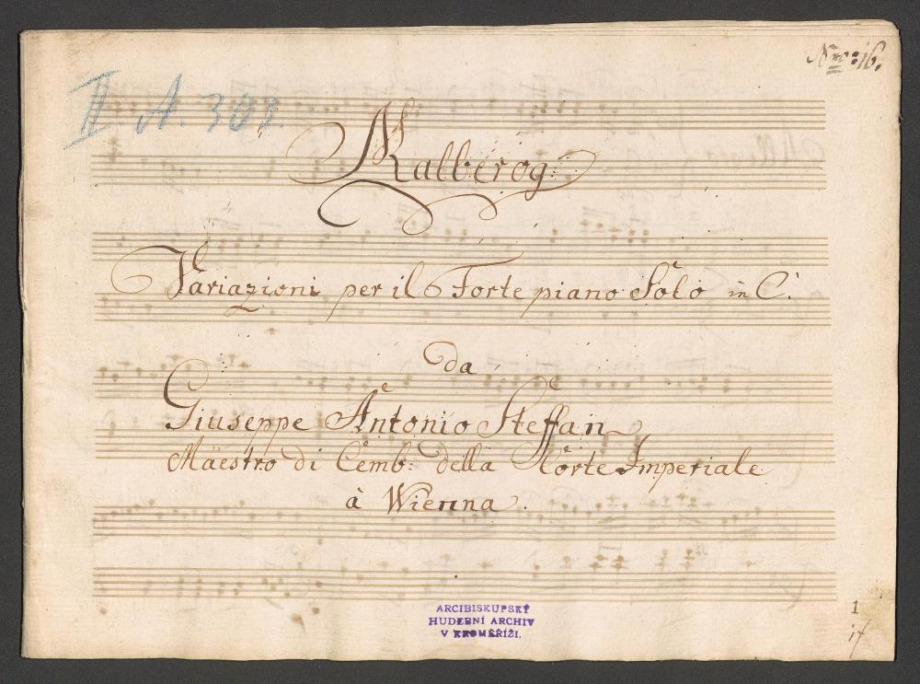 Nro: 16.
II A. 303.
Malberog
Variazioni per il Forte piano Solo in C.
da
Giuseppe Antonio Steffan
Maestro di Cemb: della Corte Imperiale
à Wienna.
ARCIBISKUPSKÝ
HUDEBNÍ ARCHIV
V KROMĚŘÍŽI.
1